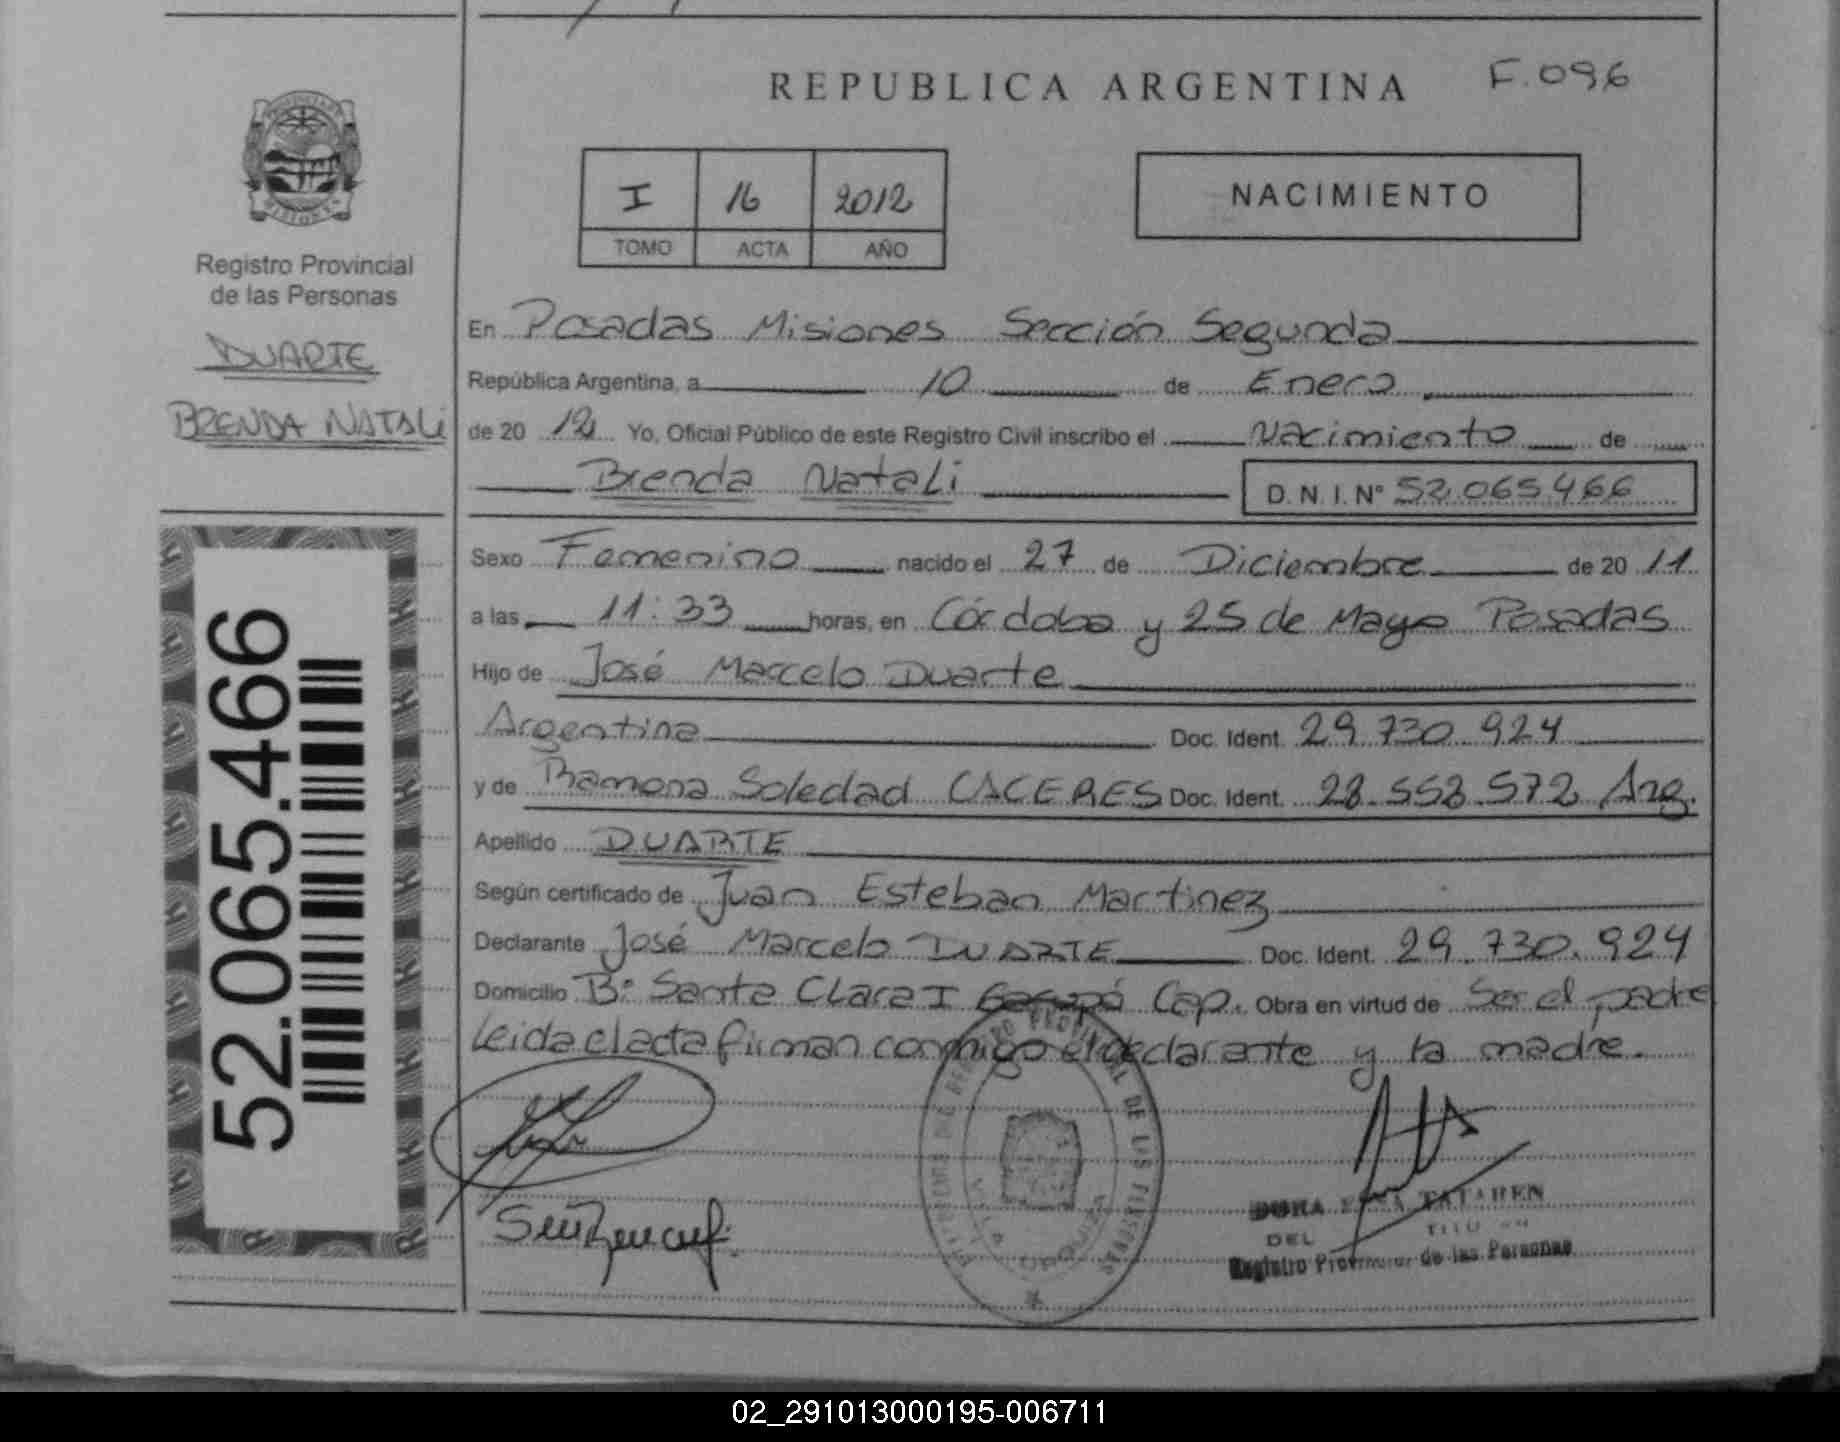 REPUBLICA ARGENTINA F.096
I 16 2012
TOMO ACTA AÑO
NACIMIENTO
PROVINCIA DE MISIONES
Registro Provincial
de las Personas
DUARTE
BRENDA NATALI
52.065.466
En Posadas Misiones Sección Segunda
República Argentina, a 10 de Enero
de 20 12 Yo, Oficial Público de este Registro Civil inscribo el Nacimiento de
Brenda Natali D.N.I. Nº 52.065.466
Sexo Femenino nacido el 27 de Diciembre de 20 11
a las 11:33 horas, en Córdoba y 25 de Mayo Posadas
Hijo de José Marcelo Duarte
Argentina Doc. Ident. 29.730.924
y de Ramona Soledad CACERES Doc. Ident. 28.558.572 Arg.
Apellido DUARTE
Según certificado de Juan Esteban Martinez
Declarante José Marcelo DUARTE Doc. Ident. 29.730.924
Domicilio Bº Santa Clara I Garupá Cap. Obra en virtud de Ser el padre
Leida el acta firman conmigo el declarante y la madre.
DEL
Registro Provincial de las Personas
02_291013000195-006711